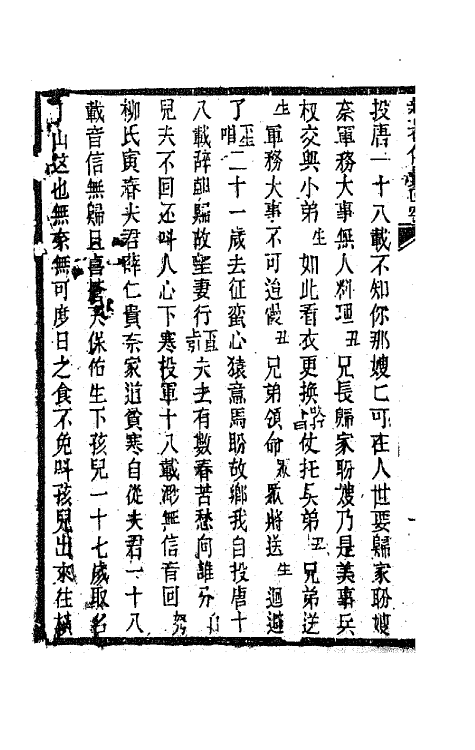 投唐一十八載不知你那嫂亡可在人世要歸家盼嫂
奈軍務大事無人料理丑兄長歸家盼嫂乃是美事兵
权交與小弟生如此看衣更換仗托与弟丑兄弟送
生軍務大事不可迫慢丑兄弟領命衆衆將送生迴避
了唱二十一歲去征蛮心猿意馬盼故鄉我自投唐十
八載辞朝歸故望妻行夫去有數春苦愁向誰分
兒夫不回还呌人心下寒投軍十八載渺無信音回
柳氏寅春夫君薛仁貴奈家道貧寒自從夫君一十八
載音信無歸且喜蒼天保佑生下孩兒一十七歲取名
丁山这也無奈無可度日之食不免呌孩兒出來往